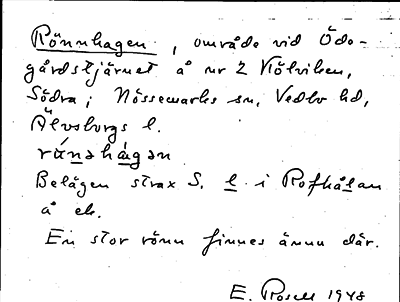 Rönnhagen, område vid Öde-
gårdstjärnet å nr 2 Kölviken,
Södra; Nössemarks sn, Vedbo hd,
Älvsborgs l.
rúnahágan
Belägen strax S. l i Rofhålan
å ek.
En stor rönn finnes ännu där.
E. Rosell 1948